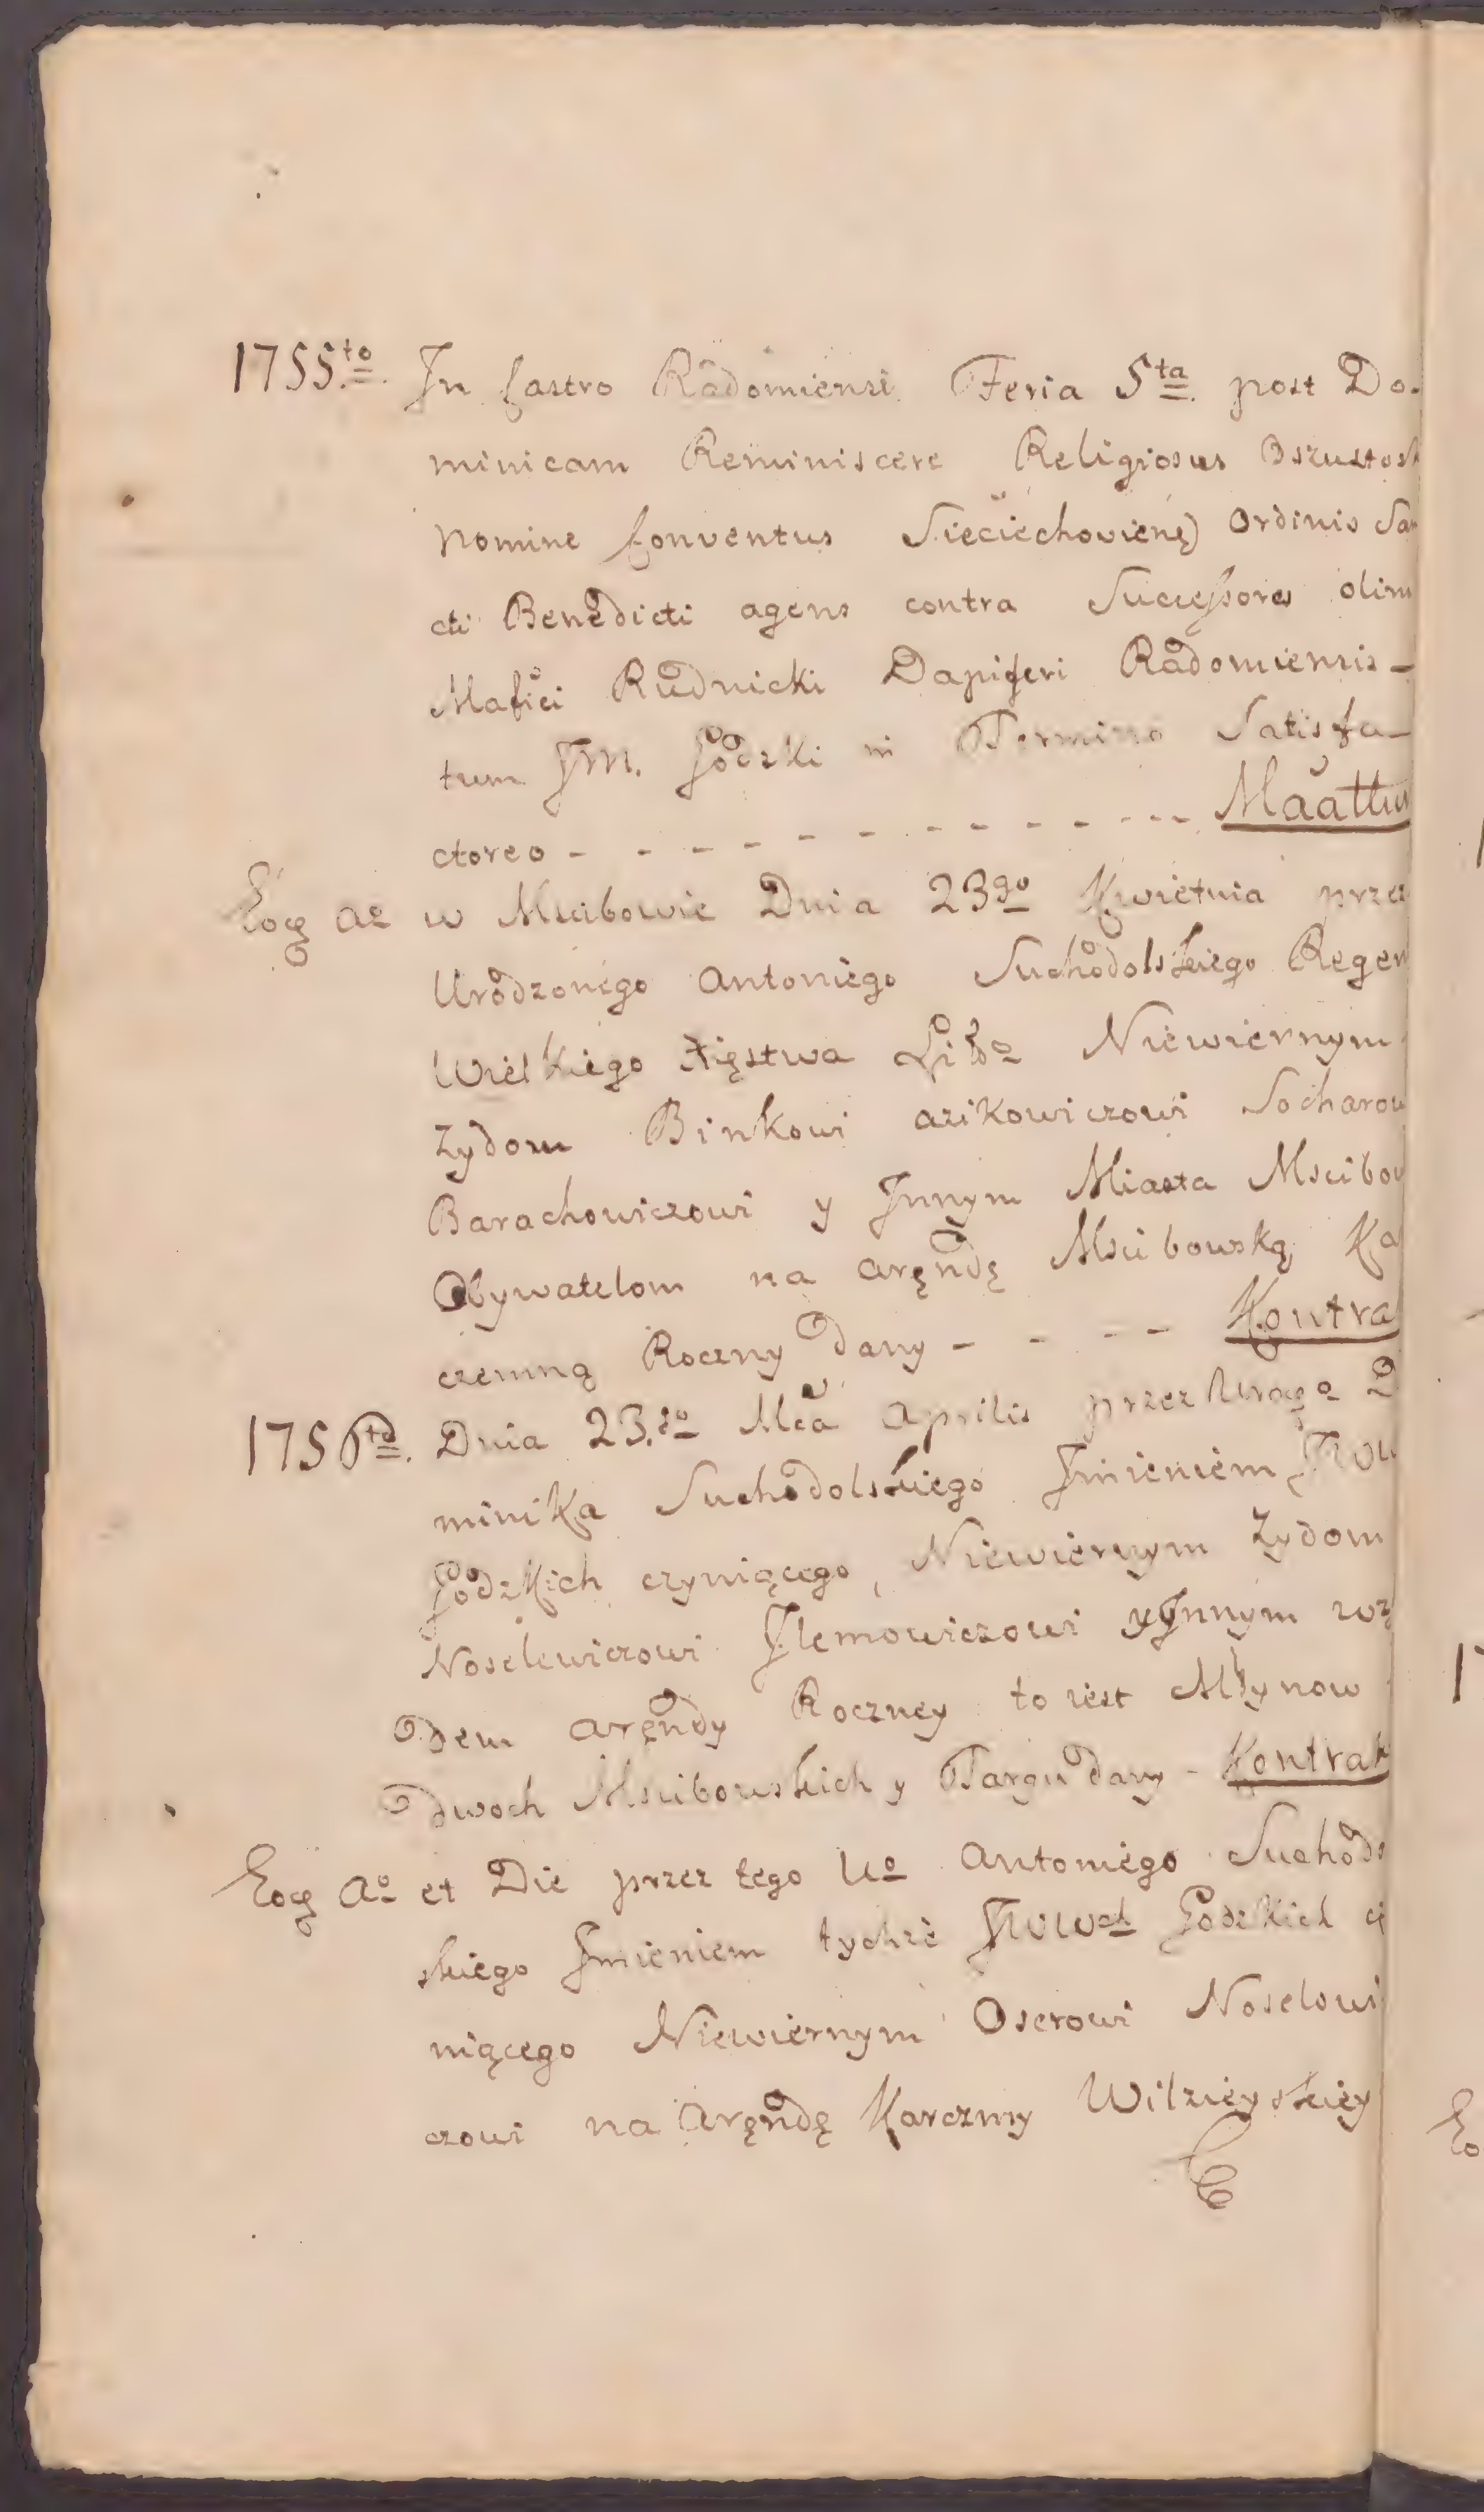 1755.to In Castro Radomiensi Feria 5ta post Do-
minicam Reminiscere Religiosus Oszustosk
Nomine Conventus Sieciechoviens Ordinis San
cti Benedicti agens contra Successores olim
Mafici Rudnicki Dapiferi Radomiensis -
tum JM. Łodzki in Termino Satisfa-
ctoreo - - - - - - - - - - - -
Eoq Ao w Mscibowie Dnia 23go Kwietnia przez
Urodzonego Antoniego Suchodolskiego Regen
Wielkiego Xięstwa Litto Niewiernym
Zydom Binkowi Azikowiczowi Socharow
Barachowiczowi y Innym Miasta Mscibow
Obywatelom na Aręndę Mscibowską Ka
czemną Roczny dany - - - - Kontra
1756to. Dnia 23.io Mca Aprilis przez D
minika Suchodolskiego Imieniem JWW
Łodzkich czyniącego, Niewiernym Zydom
Noselewiczowi Jlemowiczowi y Innym wzg
dem Aręndy Roczney to iest Młynow
dwoch Mscibowskich y Targu dany - Kontrak
Eoq Ao et Die przez tego Uo Antoniego Suchodo
skiego Imieniem tychze JWWch Łodzkich cz
niącego Niewiernym Oserowi Noselowi
czowi na Aręndę Karczmy Wilzieyskiey